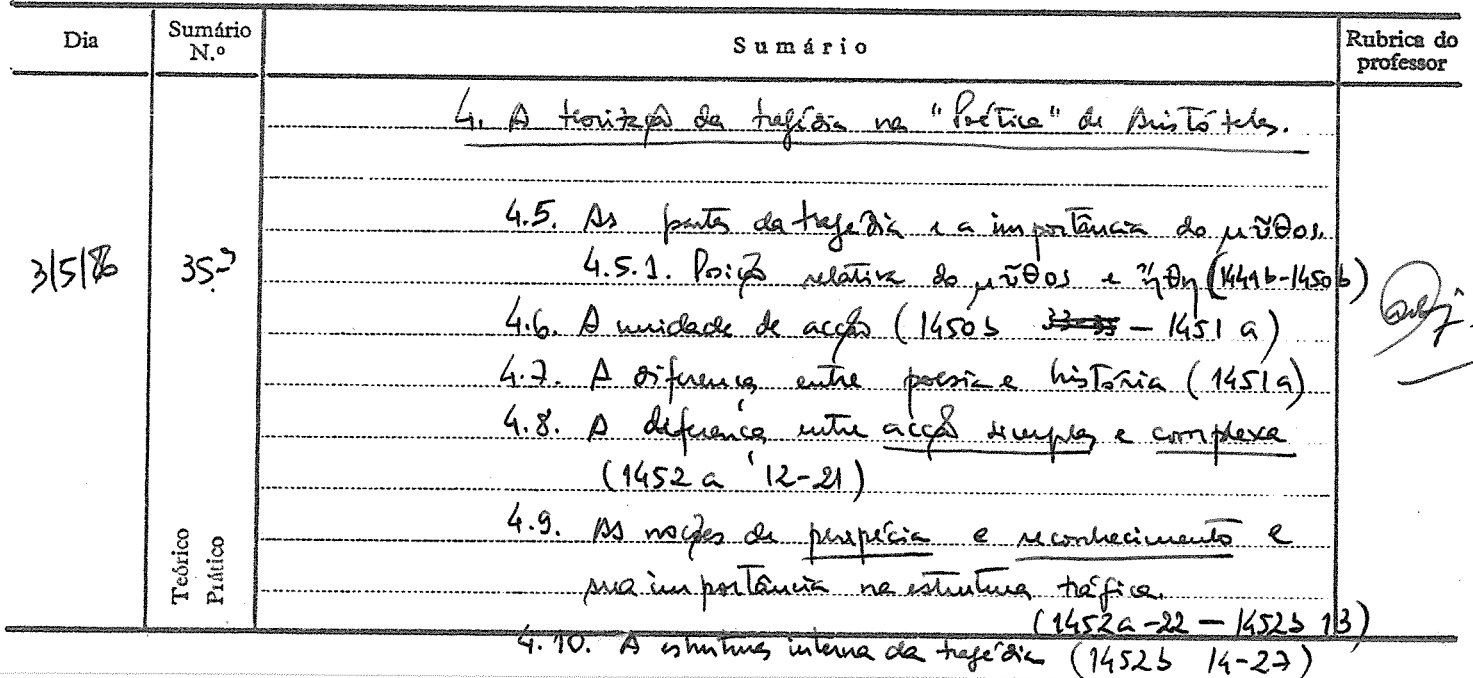 Dia
Sumário N.º
Sumário
Rubrica do professor
4. A teorização da tragédia na "Poética" de Aristóteles.
3/5/86
35.º
4.5. As partes da tragédia e a importância do μῦθος.
4.5.1. Posição relativa do μῦθος e ἤθη (1449b-1450b)
4.6. A unidade de acção (1450b - 1451a)
4.7. A diferença entre poesia e história (1451a)
4.8. A diferença entre acção simples e complexa
(1452a 12-21)
4.9. As noções de peripécia e reconhecimento e
sua importância na estrutura trágica.
(1452a-22 - 1452b 13)
4.10. A estrutura interna da tragédia (1452b 14-27)
Teórico
Prático